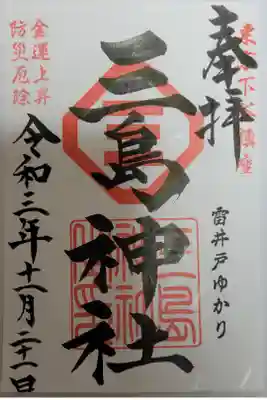 奉拝
東京下谷鎮座
雷井戸ゆかり
三島神社
金運上昇
防災厄除
令和三年十一月二十一日